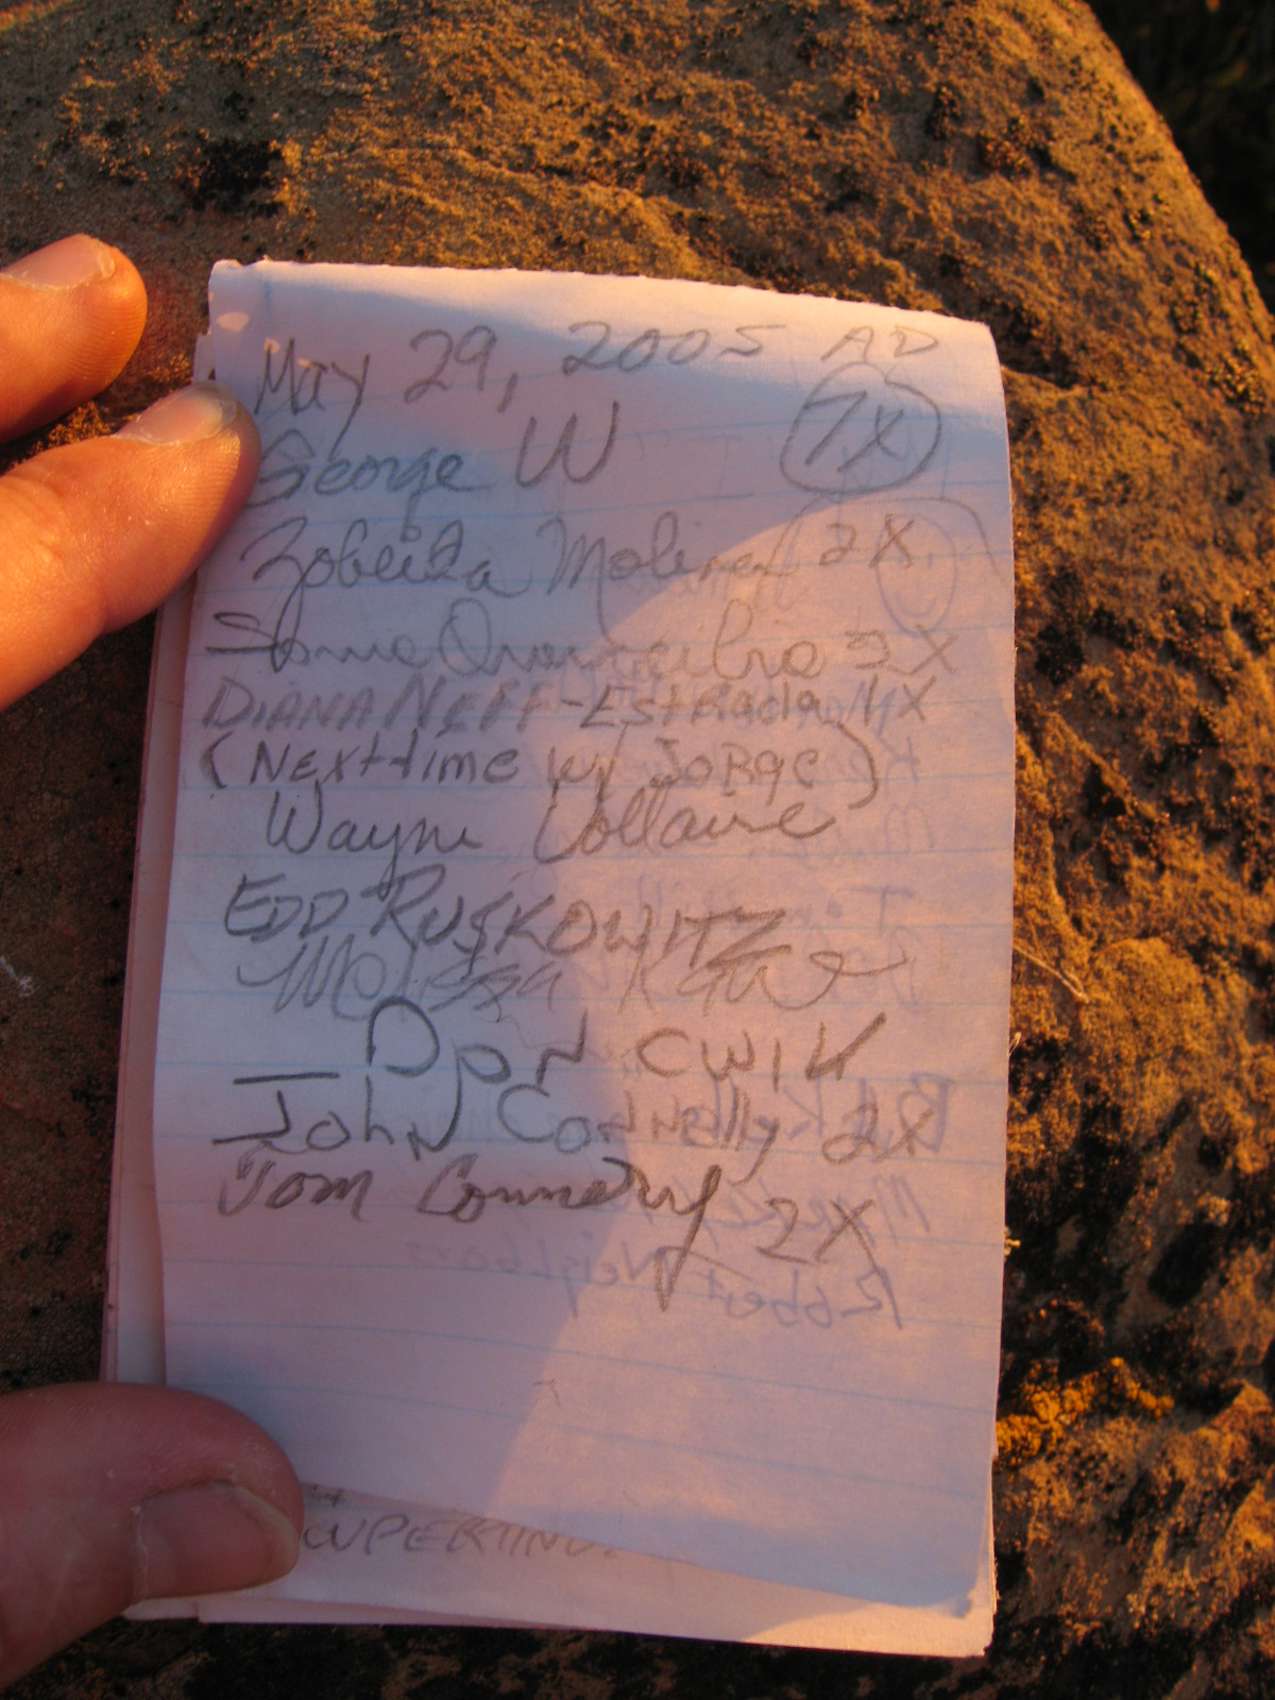 May 29, 2005 AD
George W 7X
Zobeida Molina 2X
2X
DIANA NEFF-EstRada 1X
(Next time w/ JoRge)
Wayne Vollaire
EDD RUSKOWITZ
Melissa
DON CWIK
John Connelly 2X
Tom Connery 2X
CUPERTINO